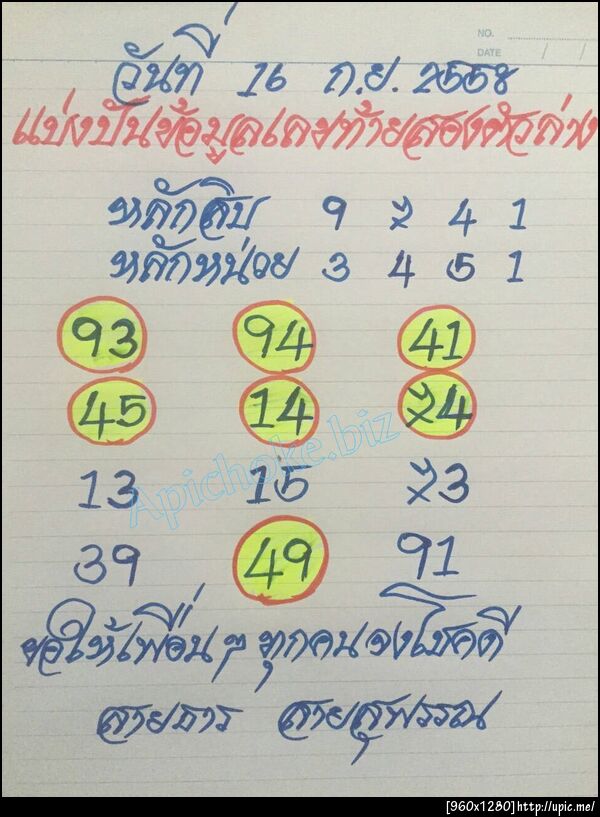 NO.
DATE / /
วันที่ 16 ก.ย. 2558
แบ่งปันข้อมูลเลขท้ายสองตัวล่าง
หลักสิบ 9 7 4 1
หลักหน่วย 3 4 5 1
93 94 41
45 14 74
Apichoke.biz
13 15 73
39 49 91
ขอให้เพื่อน ๆ ทุกคน จงโชคดี
สายธาร สายสุพรรณ
[960x1280]http://upic.me/